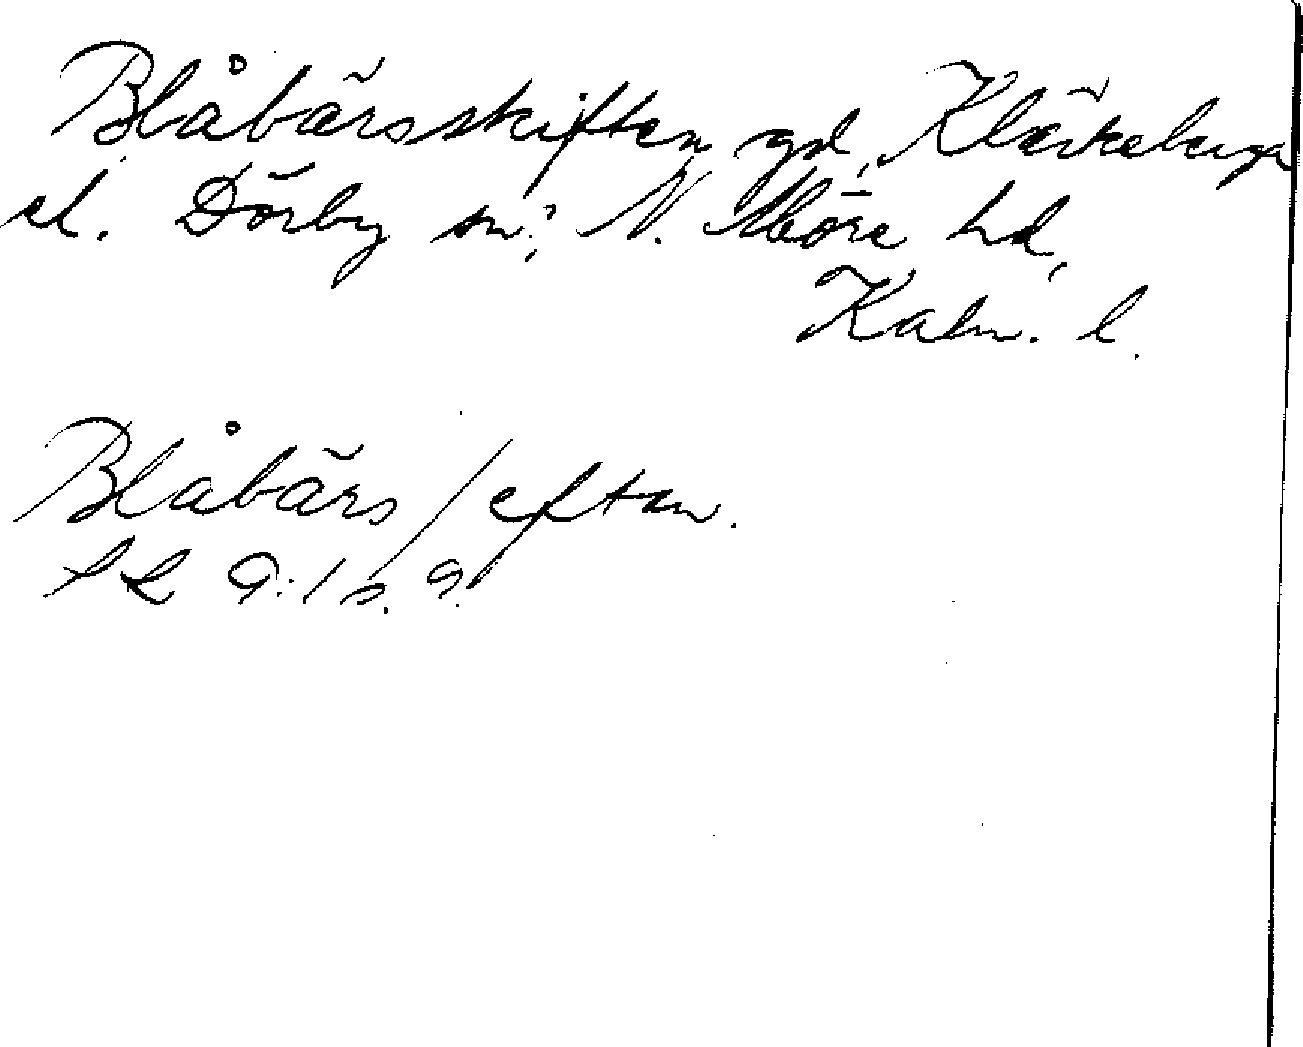 Blåbärsskiften gd, Kläckeberga
el. Dörby sn?, N. Möre hd,
Kalm. l.
Blåbärs/eften.
SL 9:1 s. 9.